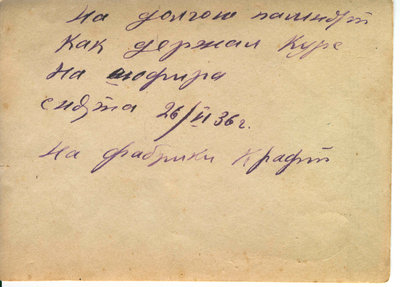 на долгою памидт
Как держал Курс
На шофира
снята 26/VI 36 г.
на фабрики Крафт